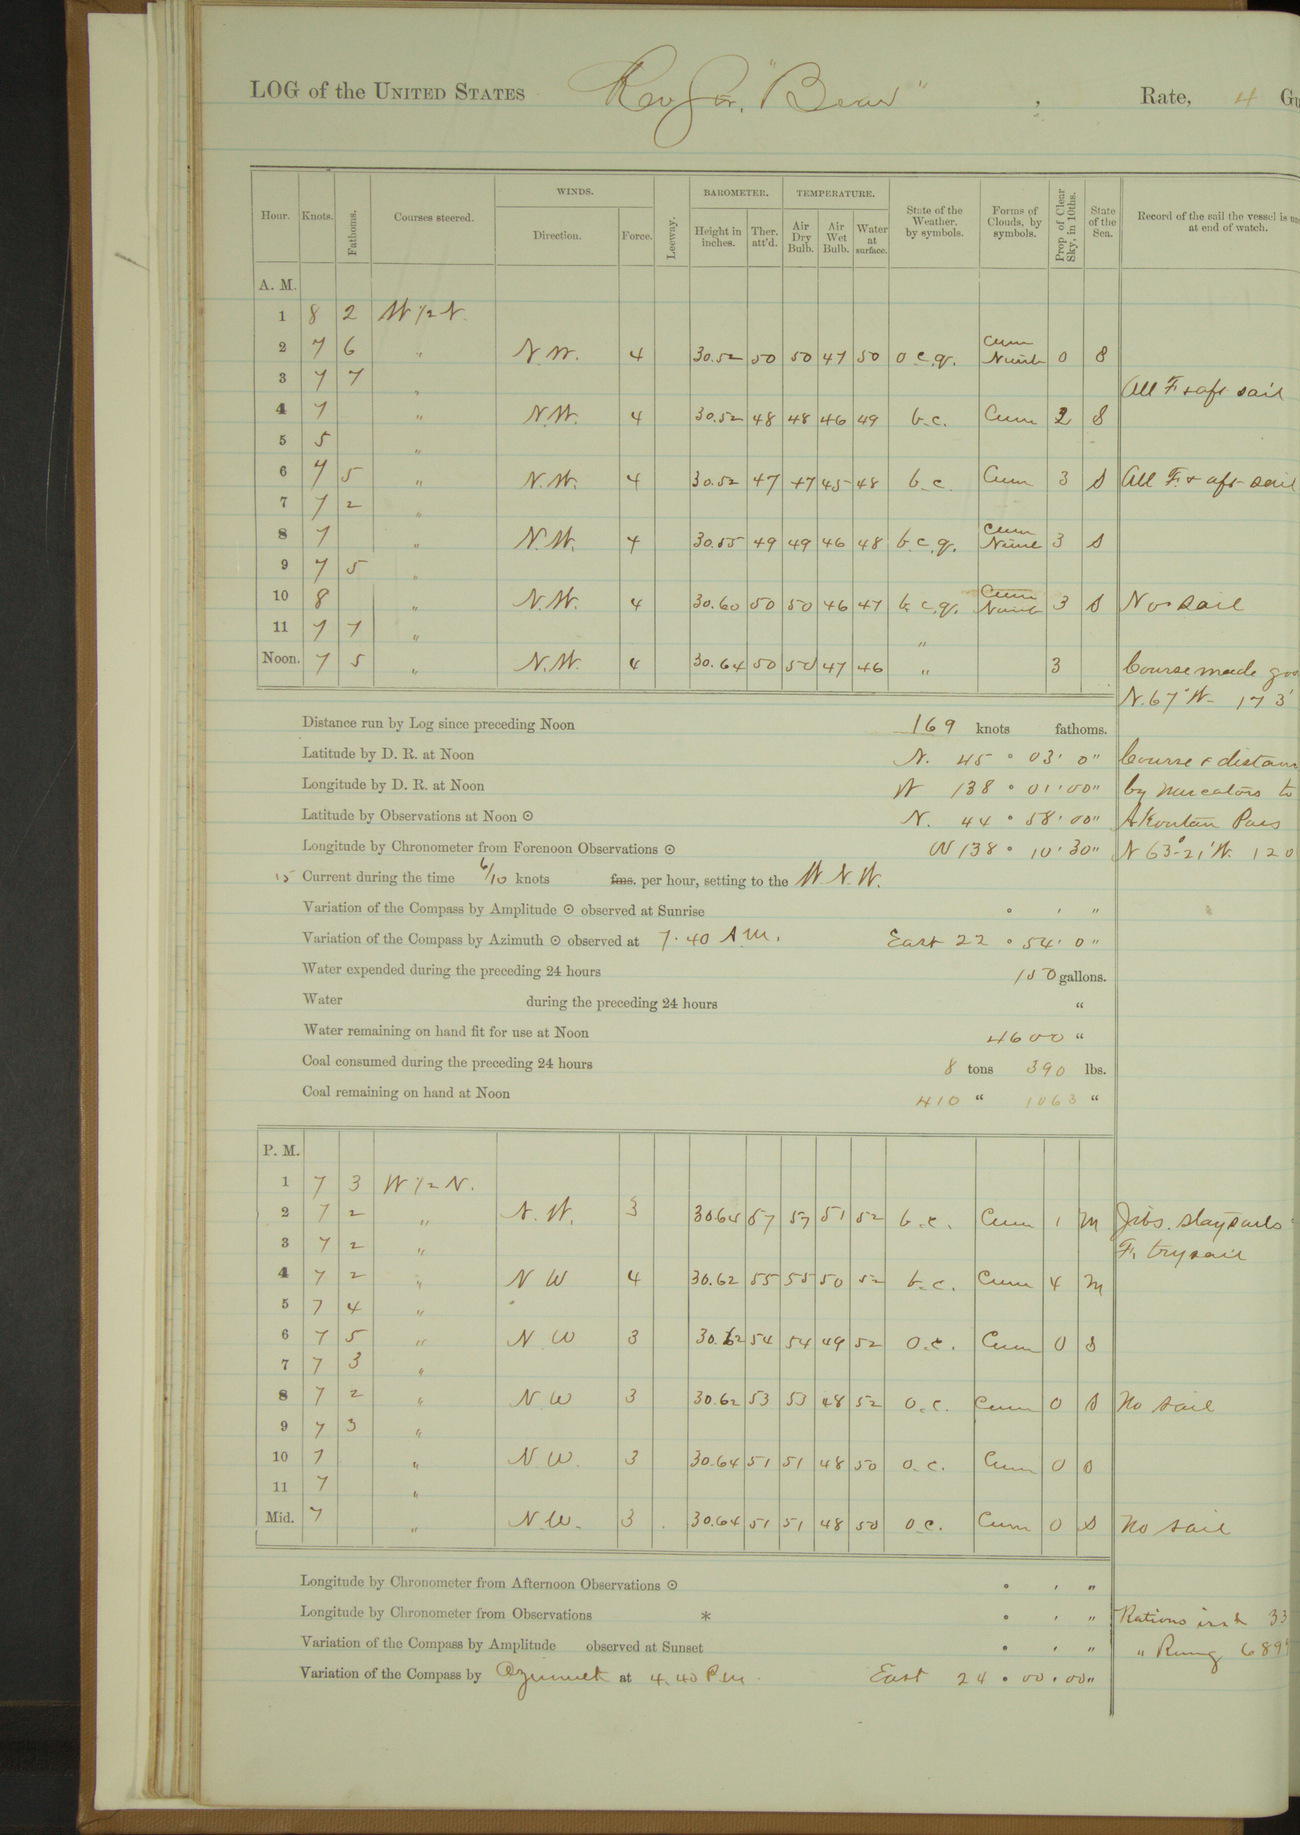 LOG of the UNITED STATES Rev Str. "Bear", Rate, 4 Gu
WINDS. BAROMETER. TEMPERATURE.
Hour. Knots. Fathoms. Courses steered. Direction. Force. Leeway. Height in inches. Ther. att'd. Air Dry Bulb. Air Wet Bulb. Water at surface. State of the Weather, by symbols. Forms of Clouds, by symbols. Prop of Clear Sky, in 10ths. State of the Sea. Record of the sail the vessel is un at end of watch.
A. M.
1 8 2 W 1/2 N.
2 7 6 " N.W. 4 30.52 50 50 47 50 o.c.q. Cum Nimb 0 S
3 7 7 " All F. & aft sail
4 7 " N.W. 4 30.52 48 48 46 49 b.c. Cum 2 S
5 5 "
6 7 5 " N.W. 4 30.52 47 47 45 48 b.c. Cum 3 S All F. & aft sail
7 7 2 "
8 7 " N.W. 4 30.55 49 49 46 48 b.c.q. Cum Nimb 3 S
9 7 5 "
10 8 " N.W. 4 30.60 50 50 46 47 b.c.q. Cum Nimb 3 S No sail
11 7 7 " "
Noon. 7 5 " N.W. 4 30.64 50 50 47 46 " 3 Course made goo
N. 67° W- 173'
Distance run by Log since preceding Noon 169 knots fathoms.
Latitude by D. R. at Noon N. 45° 03' 0" Course & distan
Longitude by D. R. at Noon W 138° 01' 00" by mercators to
Latitude by Observations at Noon ⊙ N. 44° 58' 00" Akoutan Pass
Longitude by Chronometer from Forenoon Observations ⊙ W 138° 10' 30" N 63°-21' W. 120
15 Current during the time 6/10 knots fms. per hour, setting to the W.N.W.
Variation of the Compass by Amplitude ⊙ observed at Sunrise ° ' "
Variation of the Compass by Azimuth ⊙ observed at 7.40 A.M. East 22° 54' 0"
Water expended during the preceding 24 hours 150 gallons.
Water during the preceding 24 hours "
Water remaining on hand fit for use at Noon 4600 "
Coal consumed during the preceding 24 hours 8 tons 390 lbs.
Coal remaining on hand at Noon 410 " 1063 "
P. M.
1 7 3 W 1/2 N.
2 7 2 " N.W. 3 30.64 57 57 51 52 b.c. Cum 1 M Jibs. staysails
3 7 2 " F. trysail
4 7 2 " N W 4 30.62 55 55 50 52 b.c. Cum 4 M
5 7 4 "
6 7 5 " N W 3 30.62 54 54 49 52 o.c. Cum 0 S
7 7 3 "
8 7 2 " N W 3 30.62 53 53 48 52 o.c. Cum 0 S No sail
9 7 3 "
10 7 " N W. 3 30.64 51 51 48 50 o.c. Cum 0 S
11 7 "
Mid. 7 " N.W. 3 30.64 51 51 48 50 o.c. Cum 0 S No sail
Longitude by Chronometer from Afternoon Observations ⊙ ° ' "
Longitude by Chronometer from Observations * ° ' " Rations 33
Variation of the Compass by Amplitude observed at Sunset ° ' " " Remg 689
Variation of the Compass by Azimuth at 4.40 P.M. East 24° 00' 00"